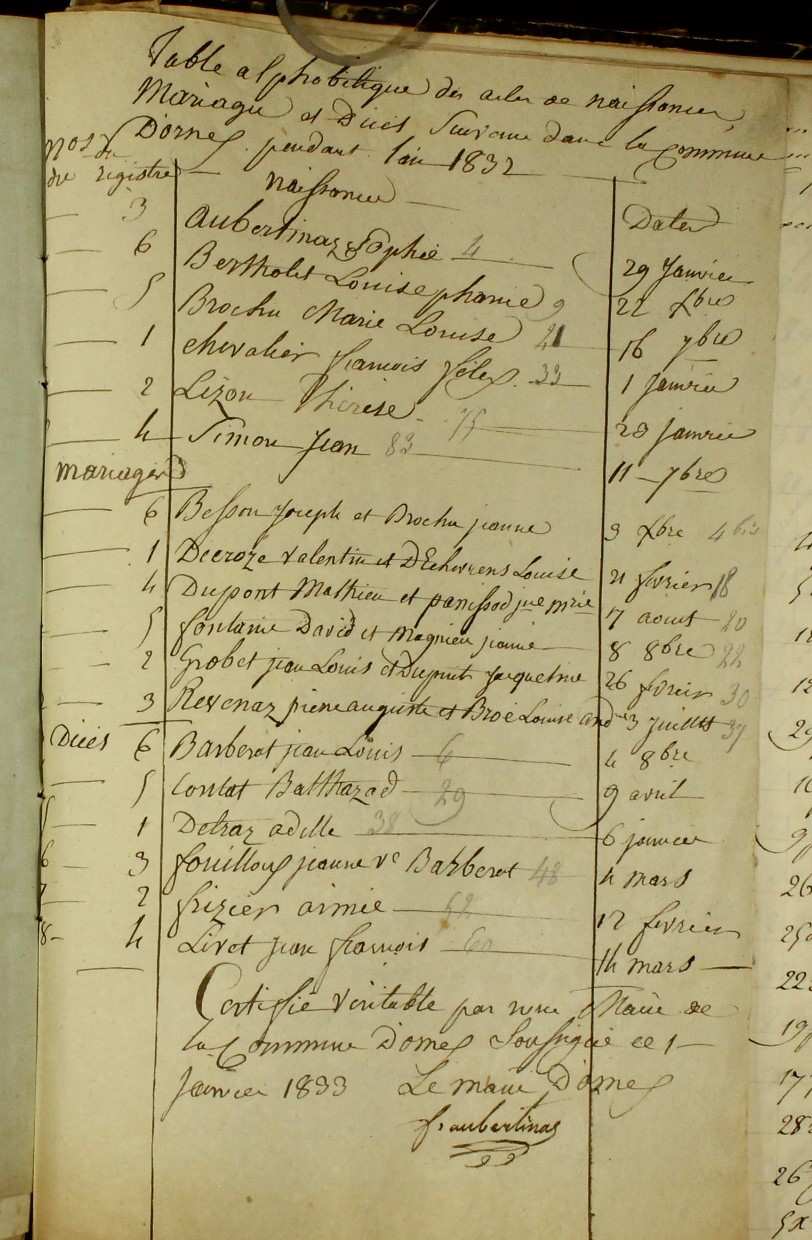 Table alphabetique des actes de naissances,
Mariages et Décés Survenu dans la Commune
D'ornex pendant l'an 1832
Nos du
du registre
naissances
Dates
3 Aubertinaz Sophie 4 29 Janvier
6 Bertholet Louise phanie 9 22 xbre
5 Brochu Marie Louise 21 16 7bre
1 chevalier francois felix 33 1 Janvier
2 Lizon Thérese 75 28 janvier
4 Simon Jean 83 11 7bre
mariages
6 Besson Joseph et Brochu jeanne 3 xbre 4 bis
1 Decroze Valentin et DEcherrens Louise 21 fevrier 18
4 Dupont Mathieu et panissod jne mrie 17 aoust 20
5 fontanie David et Magnien jeanne 8 8bre 22
2 Grobet jean Louis et Dupuit Jaquetine 26 fevrier 30
3 Revenaz pierre auguste et Broé Louise andne 3 Juillet 37
Décés
6 Barberat jean Louis 6 4 8bre
5 Contat Balthazad 29 9 avril
1 Detraz adelle 38 6 janvier
3 fouilloux jeanne Ve Barberat 48 4 mars
2 frizier aimée 52 12 fevrier
4 Livet jean francois 60 14 mars
Certifié Véritable par nous Maire de
la Commune D'ornex Soussigné ce 1
Janvier 1833 Le maire D'ornex
f. aubertinaz